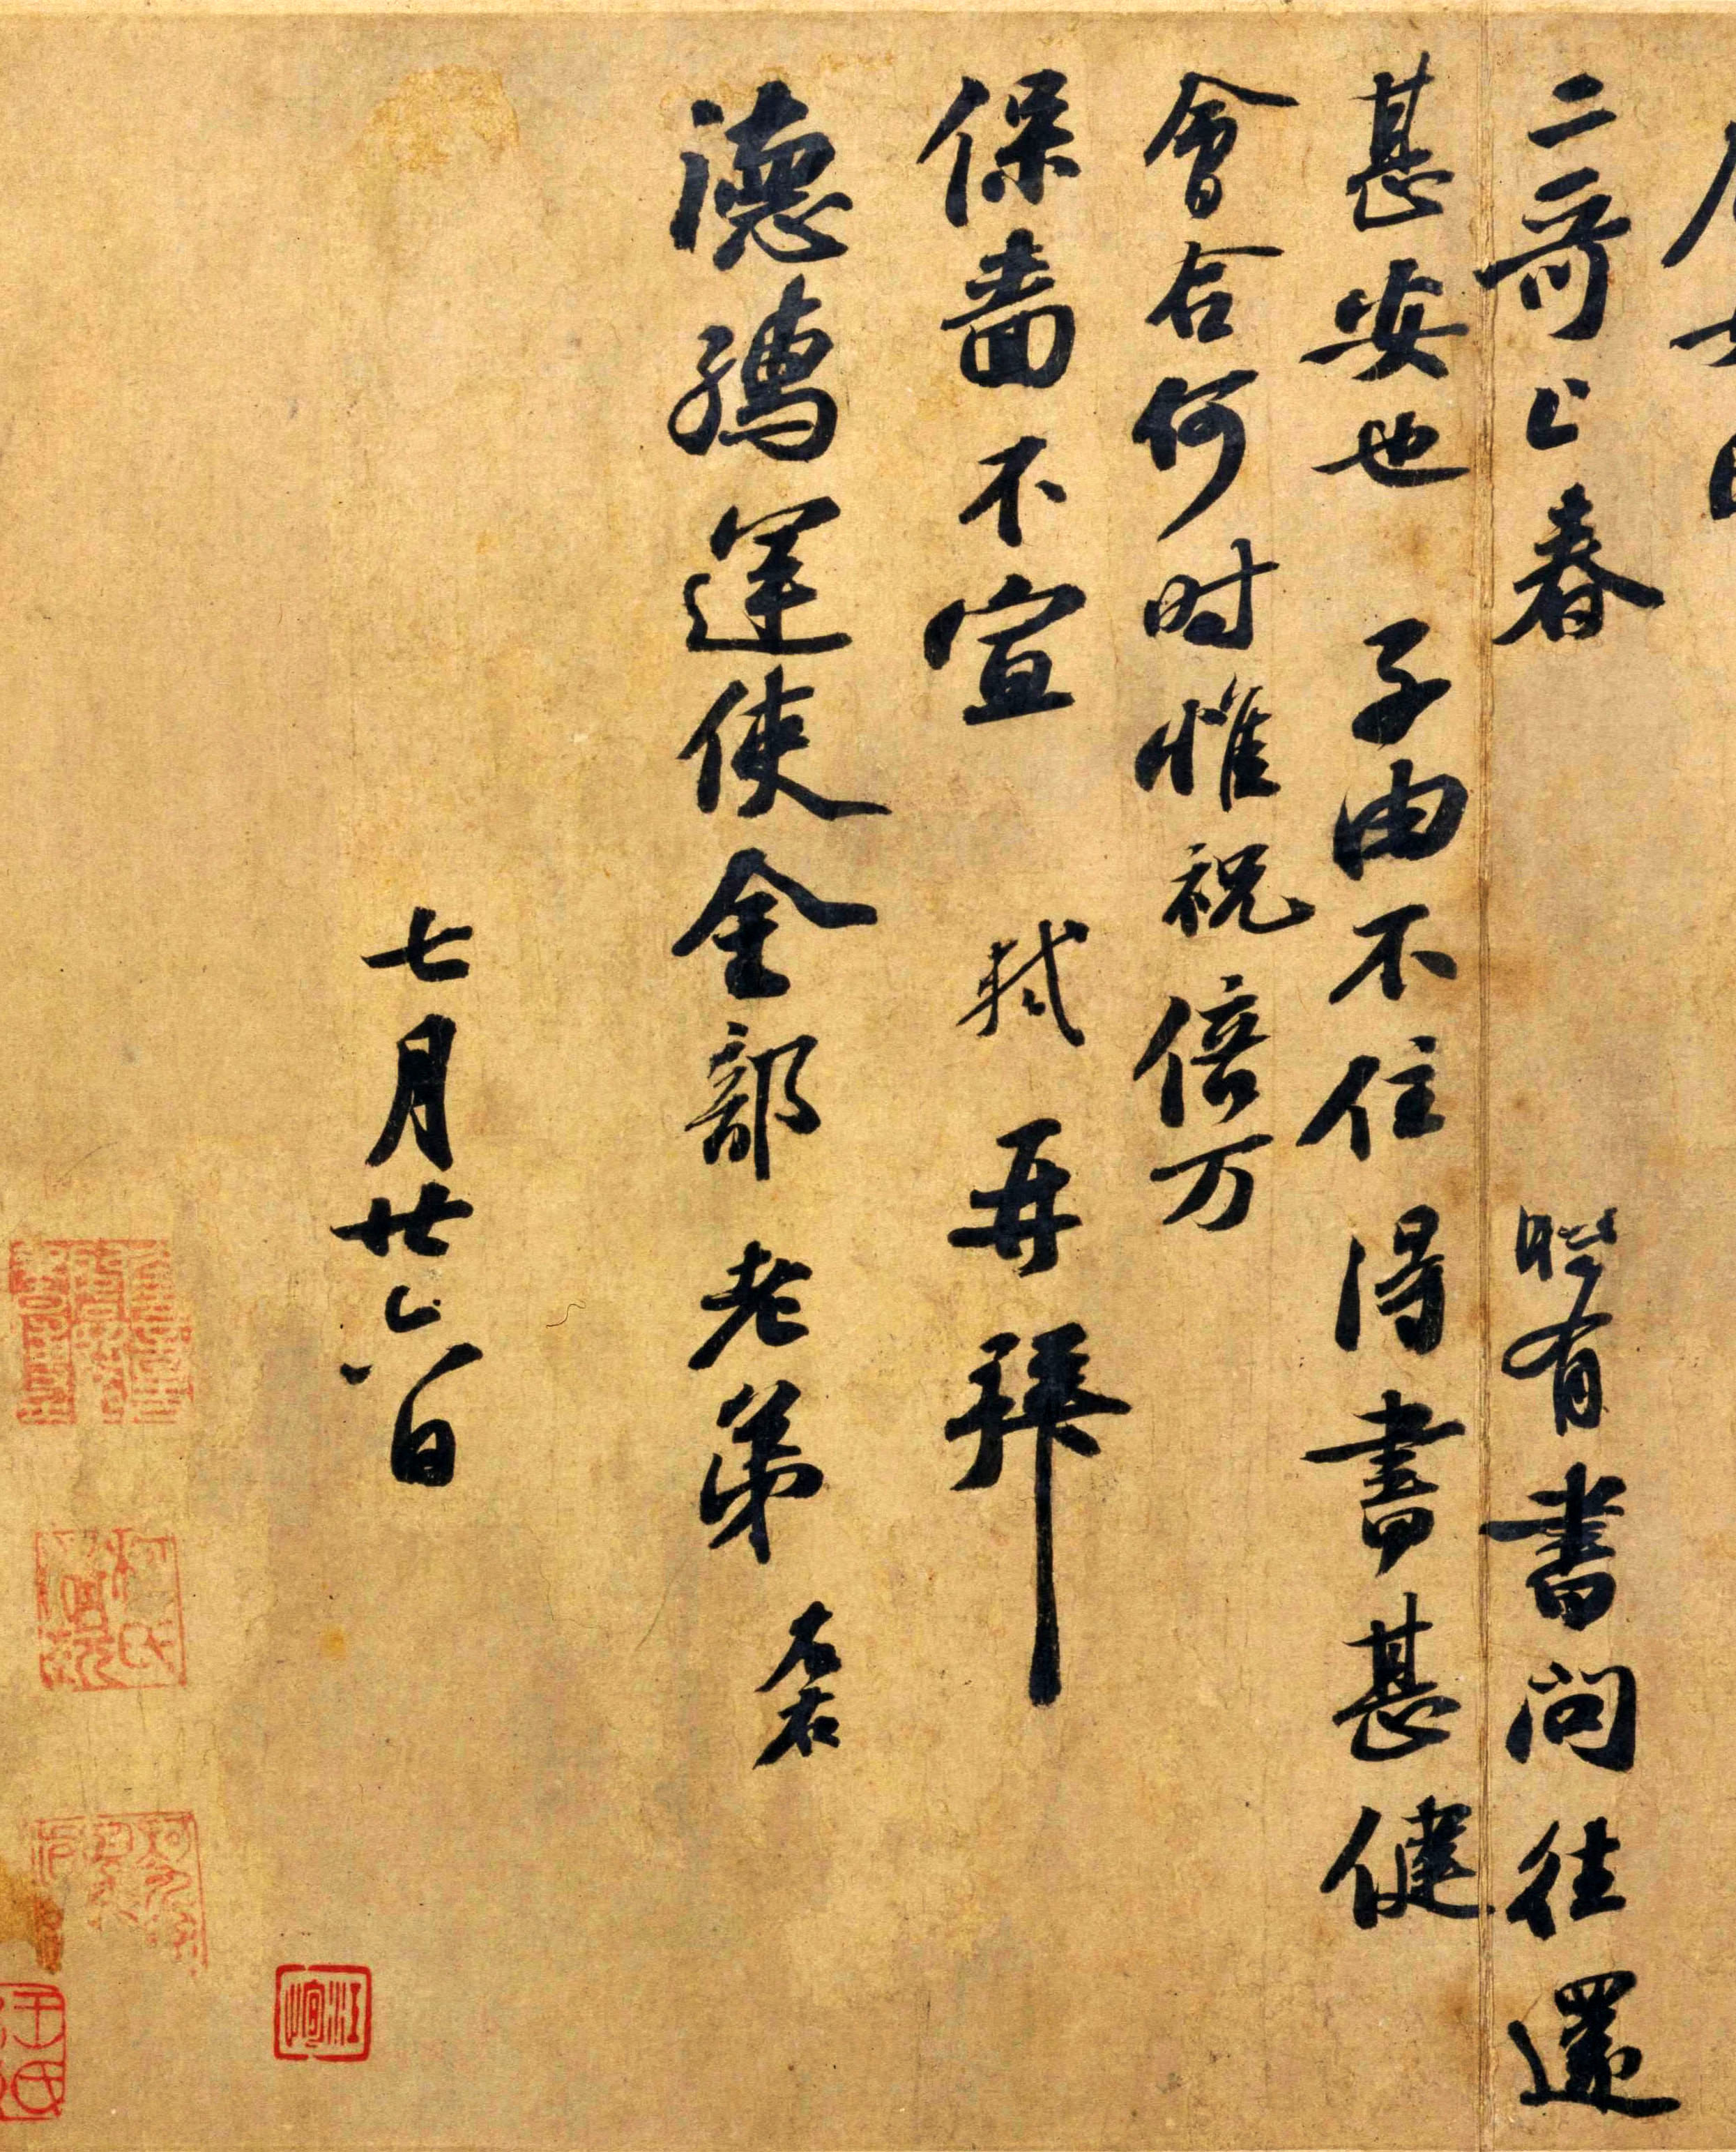 二哥上春 時有書問往還
甚安也 子由不住得書甚健
會合何时惟祝倍万
保嗇不宣 軾再拜
德孺運使金部老弟 左右
七月廿六日
江恂